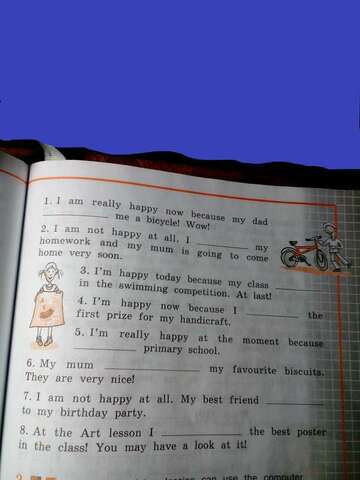 1. I am really happy now because my dad
__________ me a bicycle! Wow!
2. I am not happy at all. I ________ my
homework and my mum is going to come
home very soon.
3. I'm happy today because my class ________
in the swimming competition. At last!
4. I'm happy now because I ________ the
first prize for my handicraft.
5. I'm really happy at the moment because
__________ primary school.
6. My mum ____________ my favourite biscuits.
They are very nice!
7. I am not happy at all. My best friend ________
to my birthday party.
8. At the Art lesson I ____________ the best poster
in the class! You may have a look at it!
can use the computer